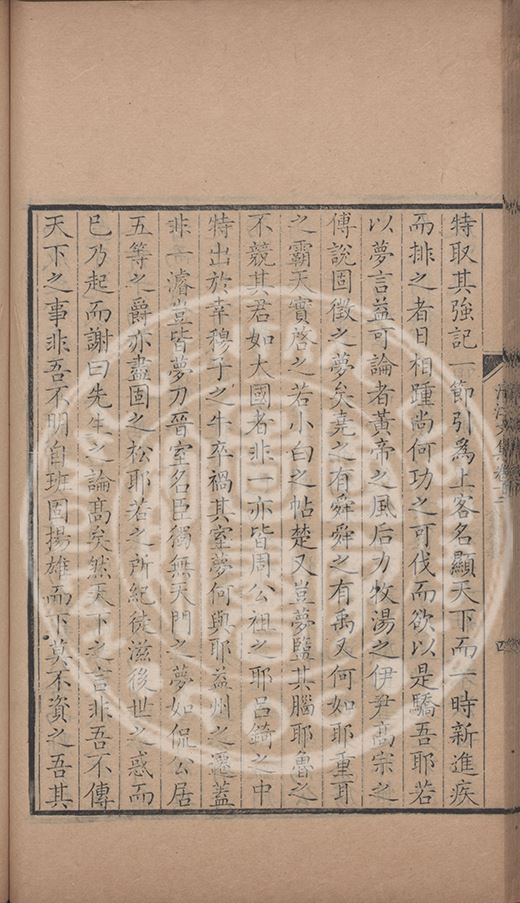 特取其強記一節引為上客名顯天下而一時新進疾
而排之者日相踵尚何功之可伐而欲以是驕吾耶若
以夢言益可論者黃帝之風后力牧湯之伊尹高宗之
傅說固徵之夢矣堯之有舜舜之有禹又何如耶重耳
之霸天實啓之若小白之帖楚又豈夢鹽其腦耶魯之
不競其君如大國者非一亦皆周公祖之耶呂錡之中
特出於幸穆子之牛卒禍其室夢何與耶益州之遷蓋
非一濬豈皆夢刀晉室名臣獨無天門之夢如侃公居
五等之爵亦盡固之松耶若之所紀徒滋後世之惑而
已乃起而謝曰先生之論高矣然天下之言非吾不傳
天下之事非吾不明自班固揚雄而下莫不資之吾其
文集卷二
四